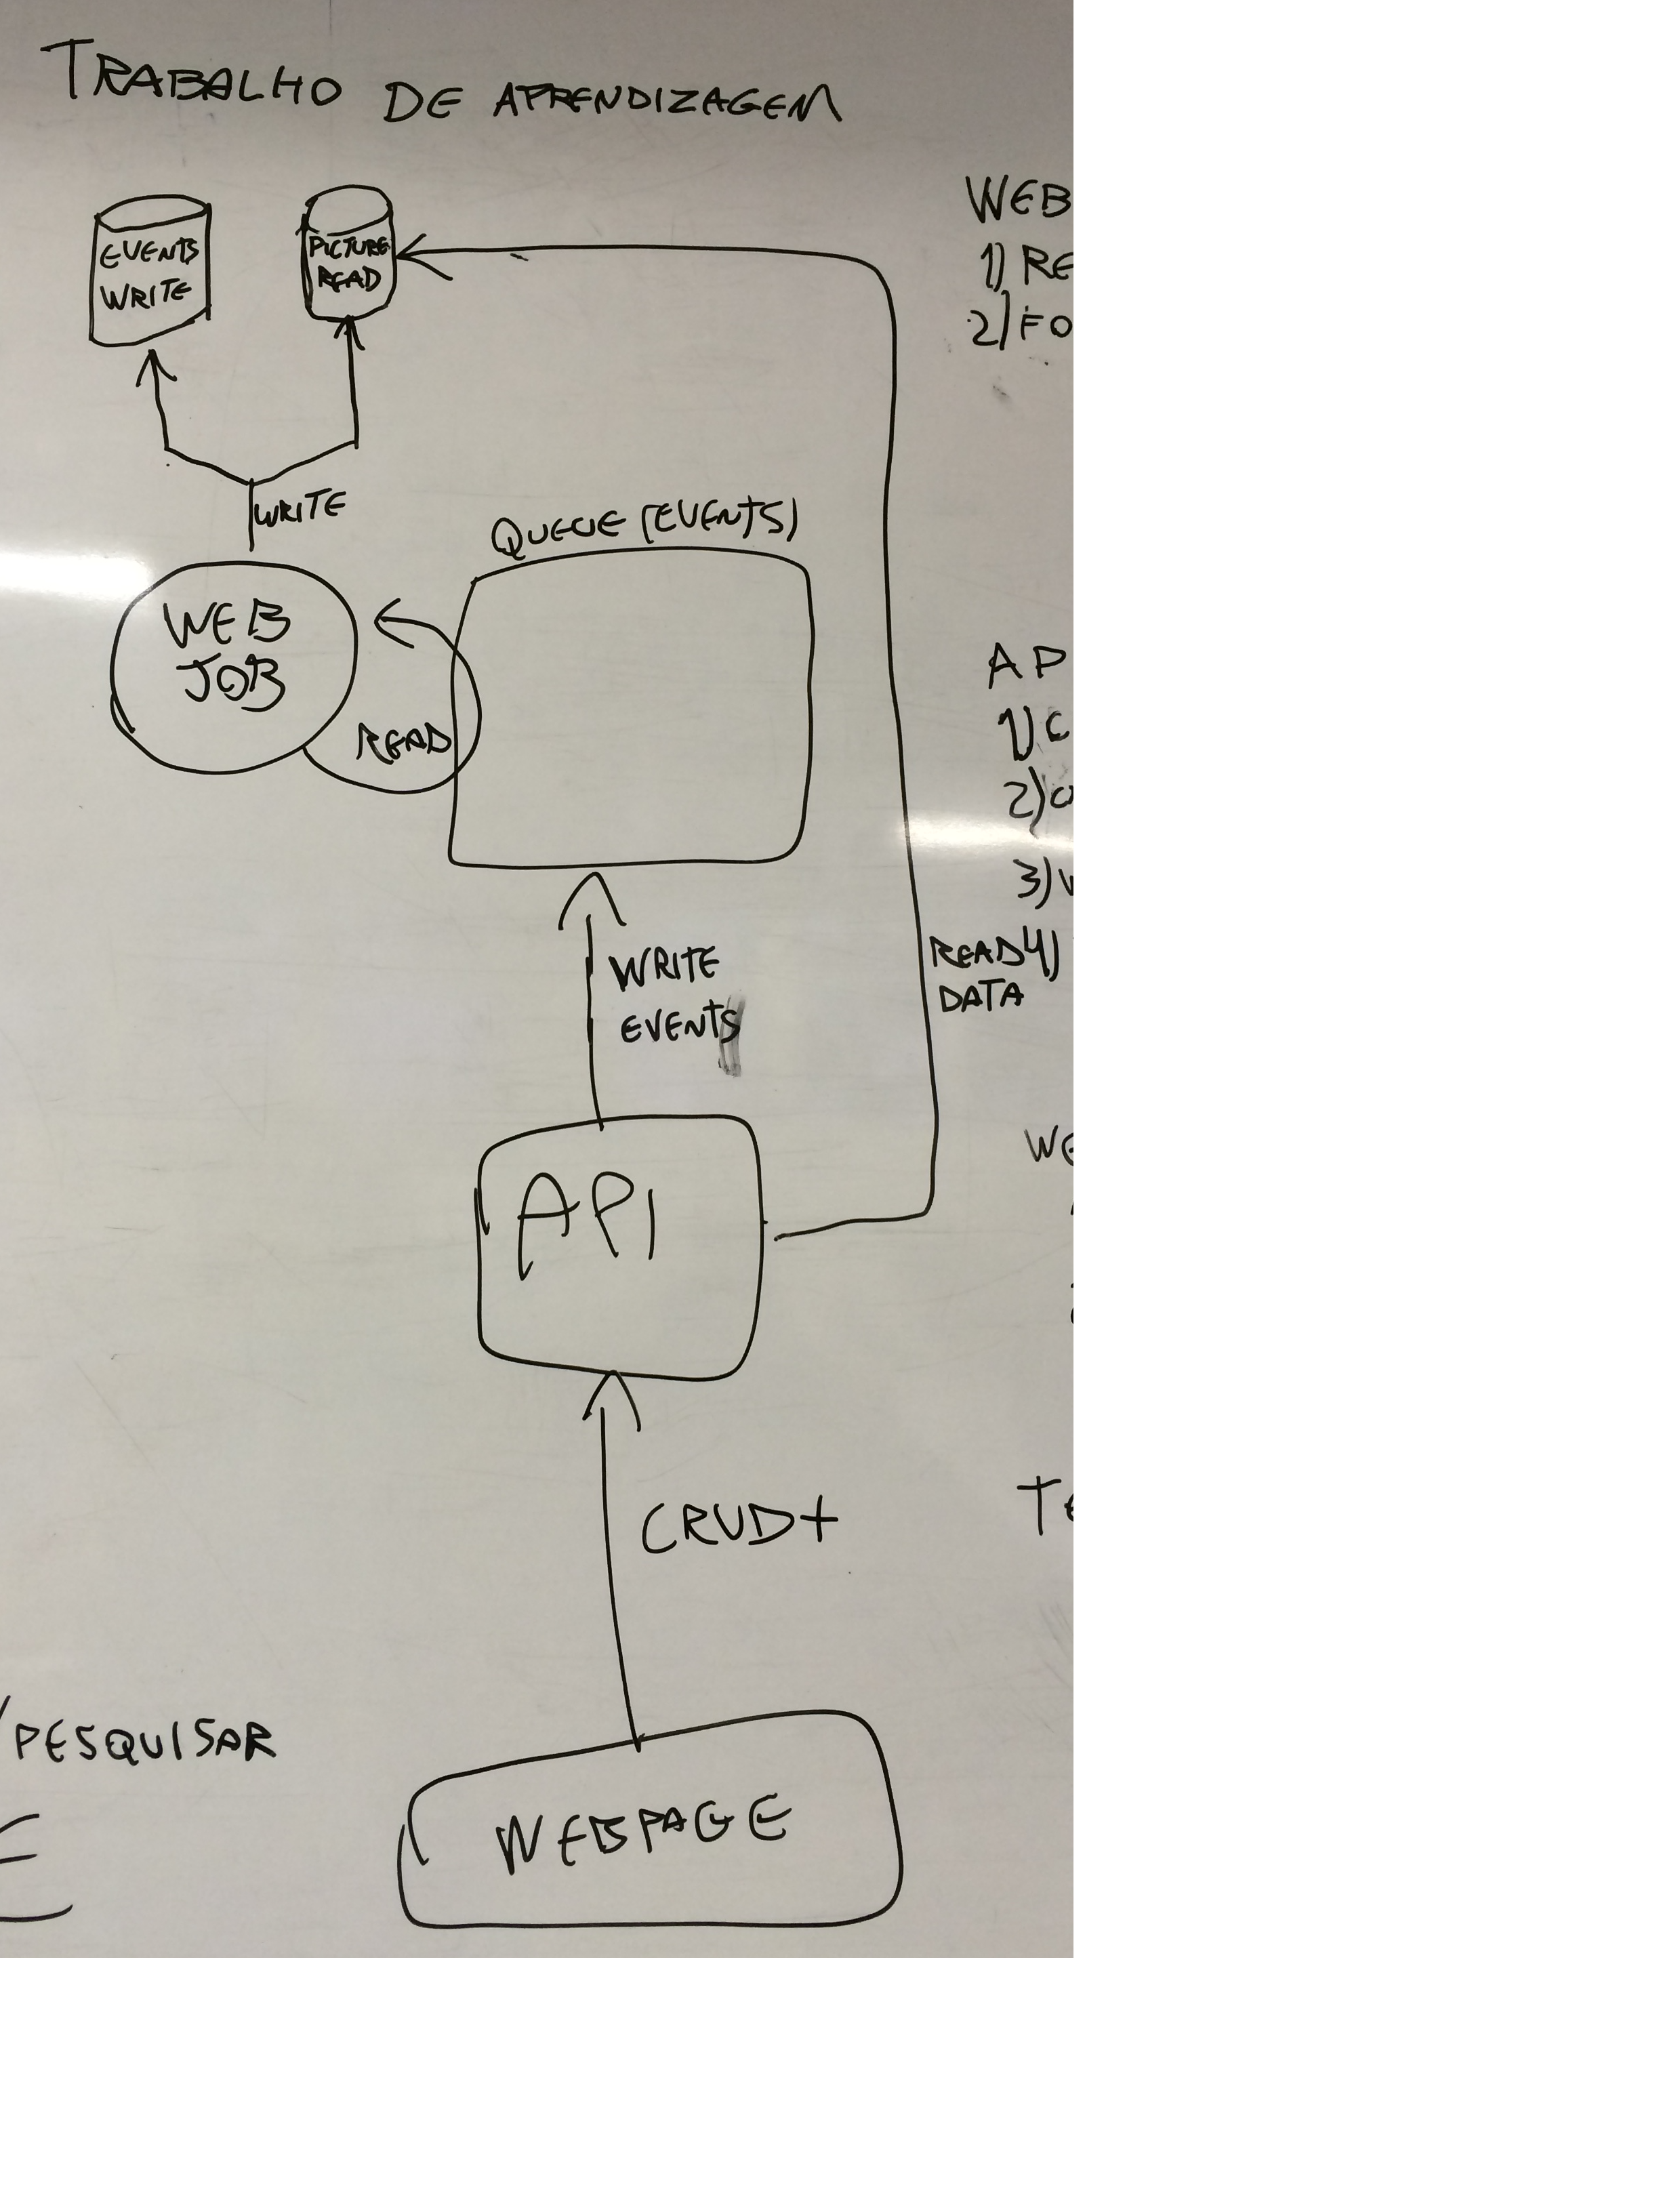 TRABALHO DE APRENDIZAGEM
EVENTS
WRITE
PICTURE
READ
WRITE
QUEUE (EVENTS)
WEB
JOB
READ
WRITE
EVENTS
READ
DATA
API
CRUD+
WEBPAGE
/PESQUISAR
WEB
1) RE
2) FO
AP
1) C
2)
3)
4)
WE
TE